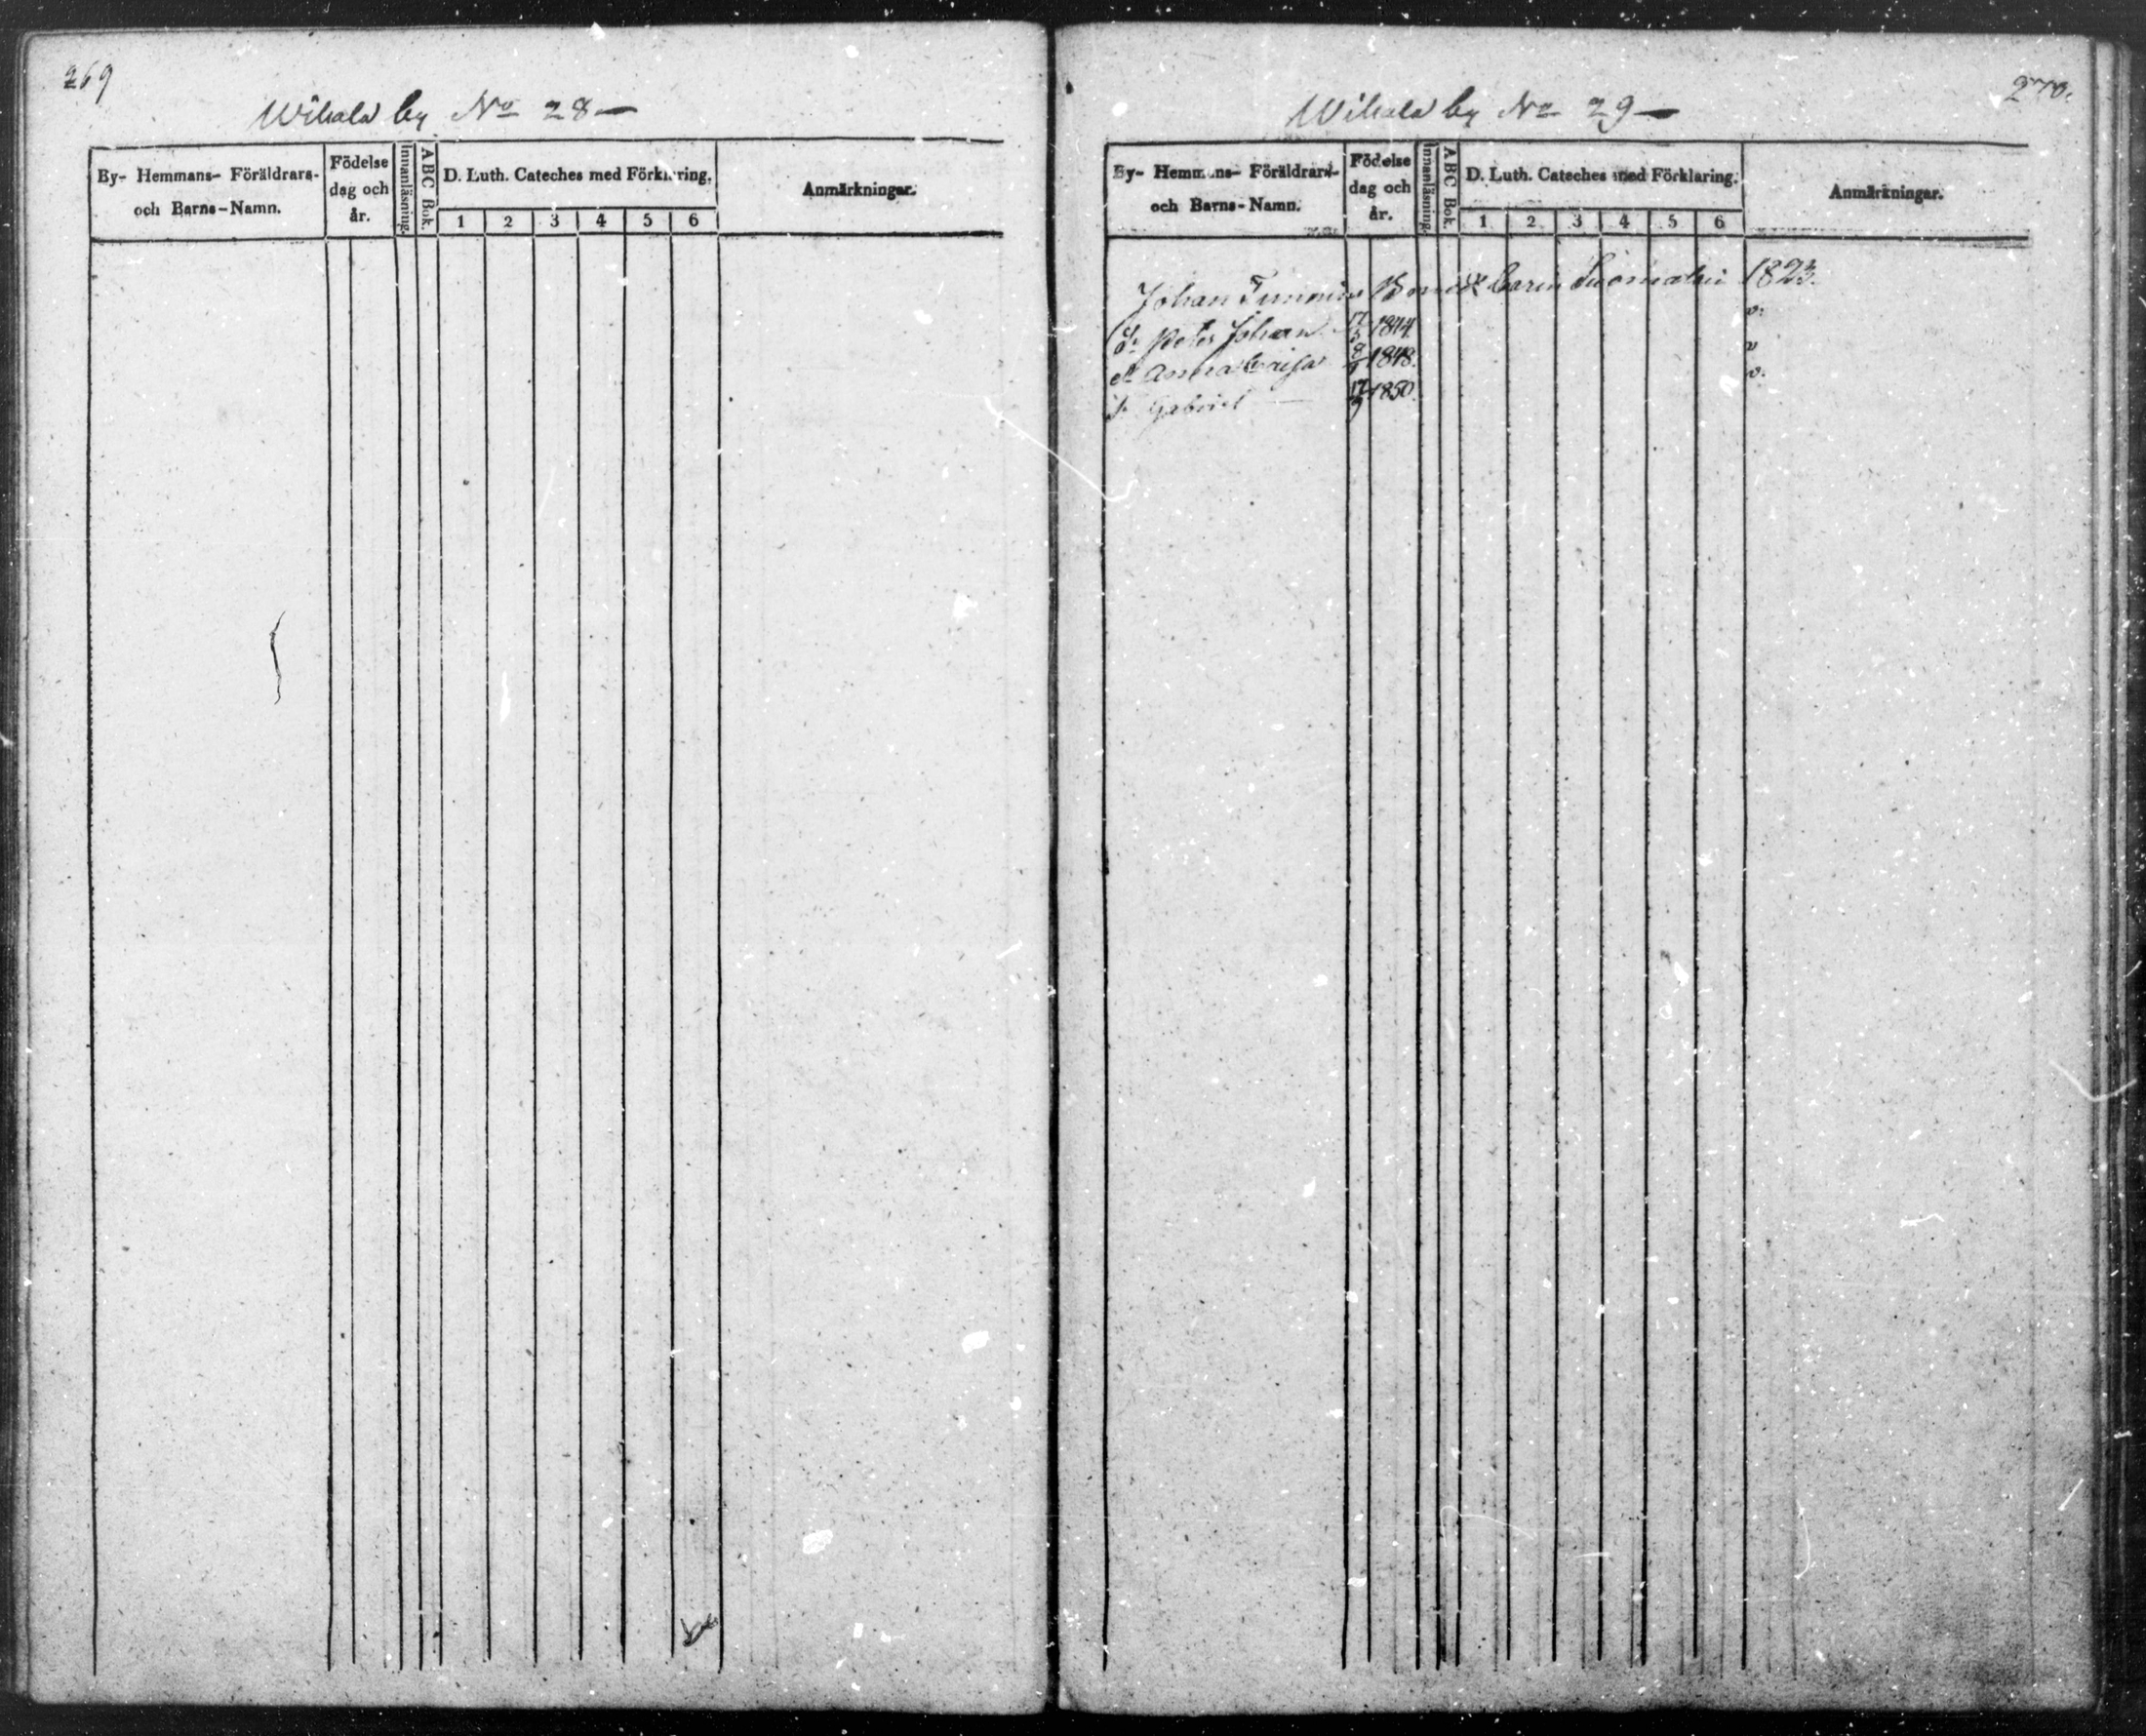 269
Wihala by No 28 —
By- Hemmans- Föräldrars-
och Barns-Namn.
Födelse
dag och
år.
Innanläsning.
ABC Bok.
D. Luth. Cateches med Förklaring.
1 2 3 4 5 6
Anmärkningar.
270.
Wihala by No 29 —
By- Hemmans- Föräldrars-
och Barns-Namn.
Födelse
dag och
år.
Innanläsning.
ABC Bok.
D. Luth. Cateches med Förklaring.
1 2 3 4 5 6
Anmärkningar.
Johan Carin 182
S. Peter Johan 1844 v.
d. Anna Caisa 8 1848. v
S. Gabriel — 17/9 1850. v.